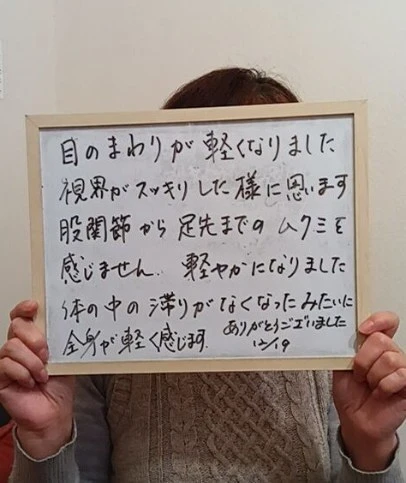 目のまわりが軽くなりました
視界がスッキリした様に思います
股関節から足先までのムクミを
感じません。軽やかになりました
体の中の滞りがなくなったみたいに
全身が軽く感じます。ありがとうございました
12/19